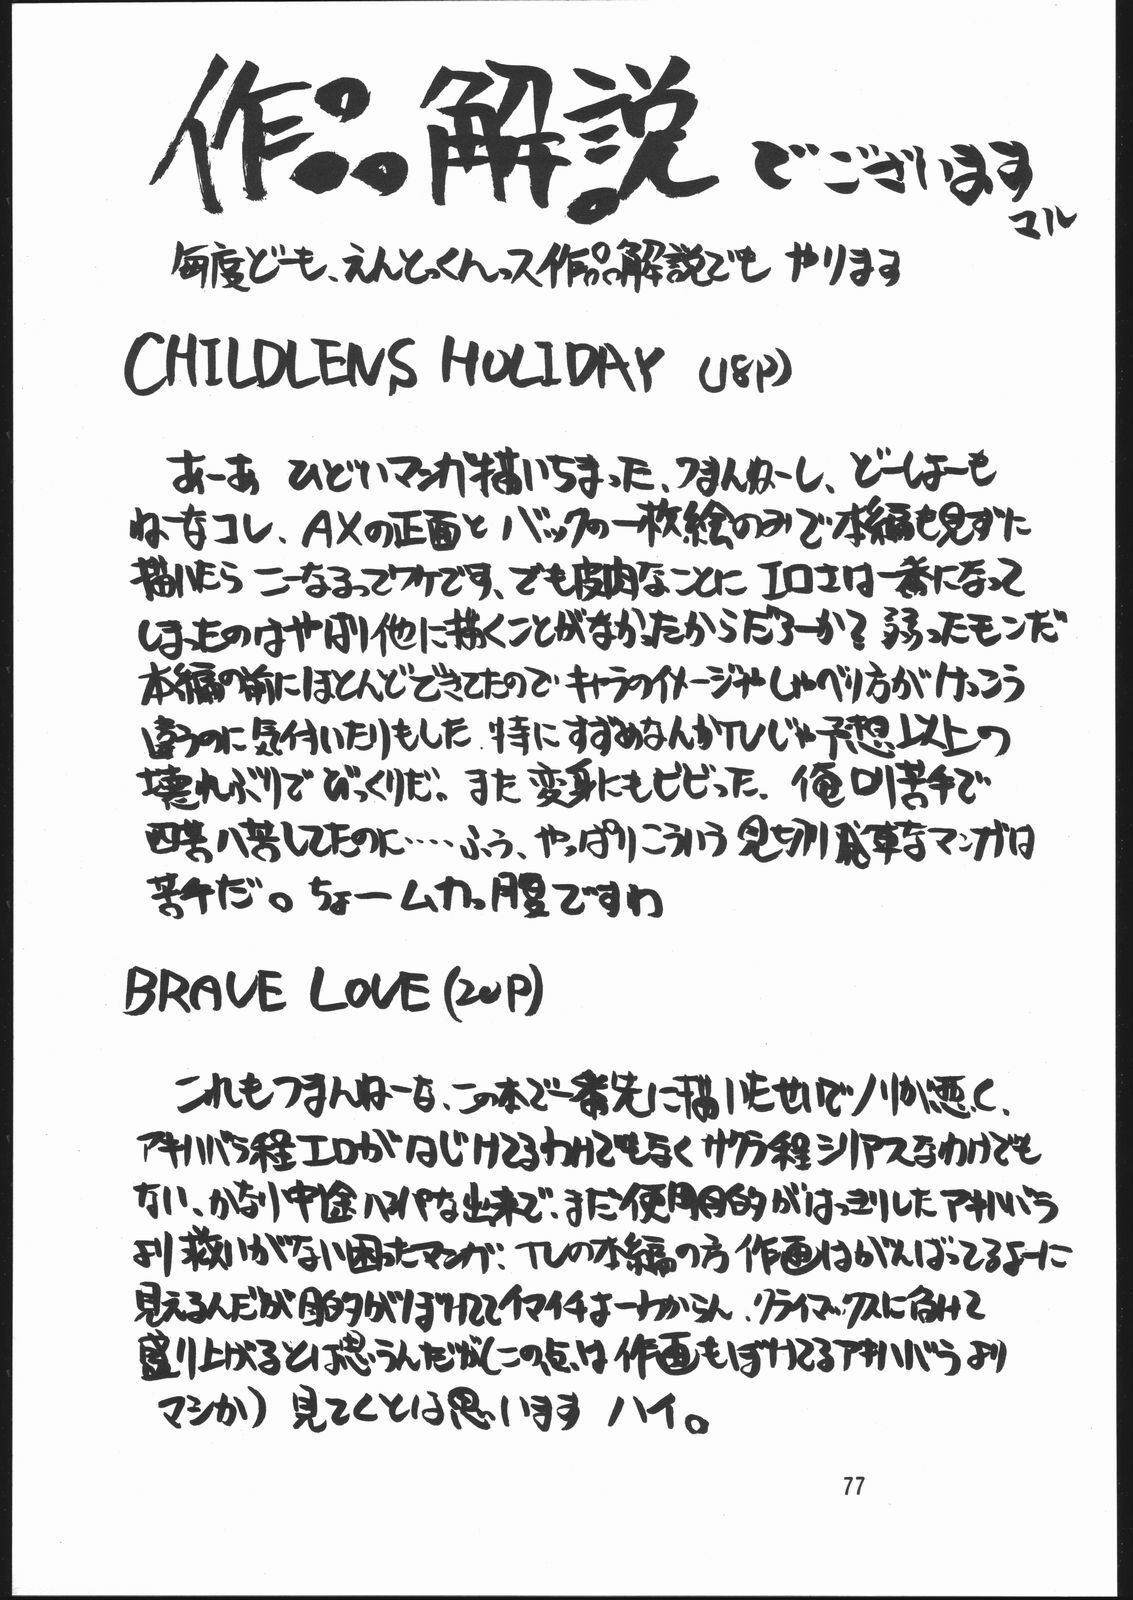 作品解説でございます
マル
毎度どーも、えんとっくんっス作品解説でも やります
CHILDLENS HOLIDAY (18P)
あーあ ひどいマンガ描いちまった、つまんねーし、どーしよーも
ねーなコレ、AXの正面とバックの一枚絵のみで本編も見ずに
描いたら こーなるってワケです、でも皮肉なことに エロさは一番になって
しまったのはやはり他に描くことがなかったからだろーか? 弱ったモンだ
本編の前にほとんどできてたので キャラのイメージやしゃべり方がけっこう
違うのに気付いたりもした 特にすずめなんかTVじゃ予想以上の
壊れぶりでびっくりだ。また 変身にもビビった、俺ロリ苦手で
四苦八苦してたのに……ふぅ、やっぱりこういう 見切り発車なマンガは
苦手だ。ちょームカっ腹ですわ
BRAVE LOVE (20P)
これもつまんねーな、この本で一番先に描いたせいでノリが悪く、
アキハバラ程エロがはじけてるわけでもなく サクラ程シリアスなわけでも
ない、かなり中途ハンパな出来で、まだ使用目的がはっきりしたアキハバラ
より救いがない困ったマンガ、TVの本編の方 作画はがんばってるよーに
見えるんだが目的がぼけててイマイチよーわからん、クライマックスに向けて
盛り上げるとは思うんだが(この点は 作画もぼけてるアキハバラより
マシか) 見てくとは思います ハイ。
77